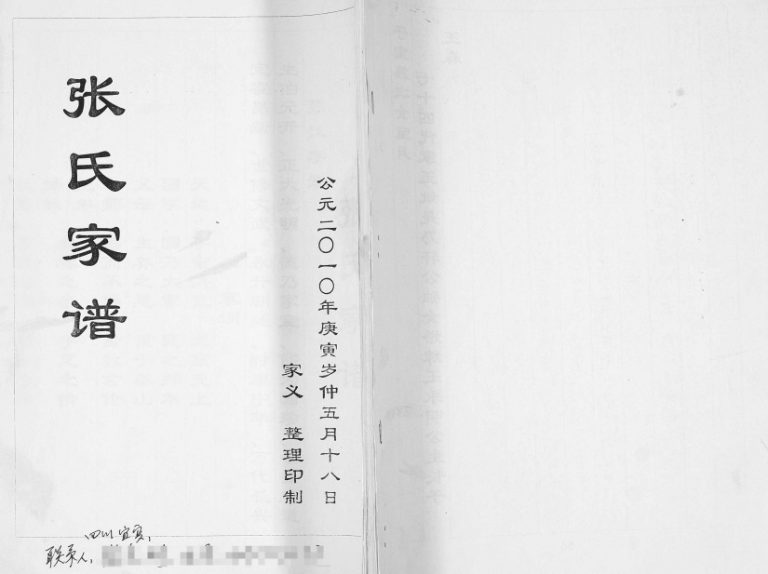 张氏家谱
公元二〇一〇年庚寅岁仲五月十八日
家义 整理印制
四川宜宾,
联系人,